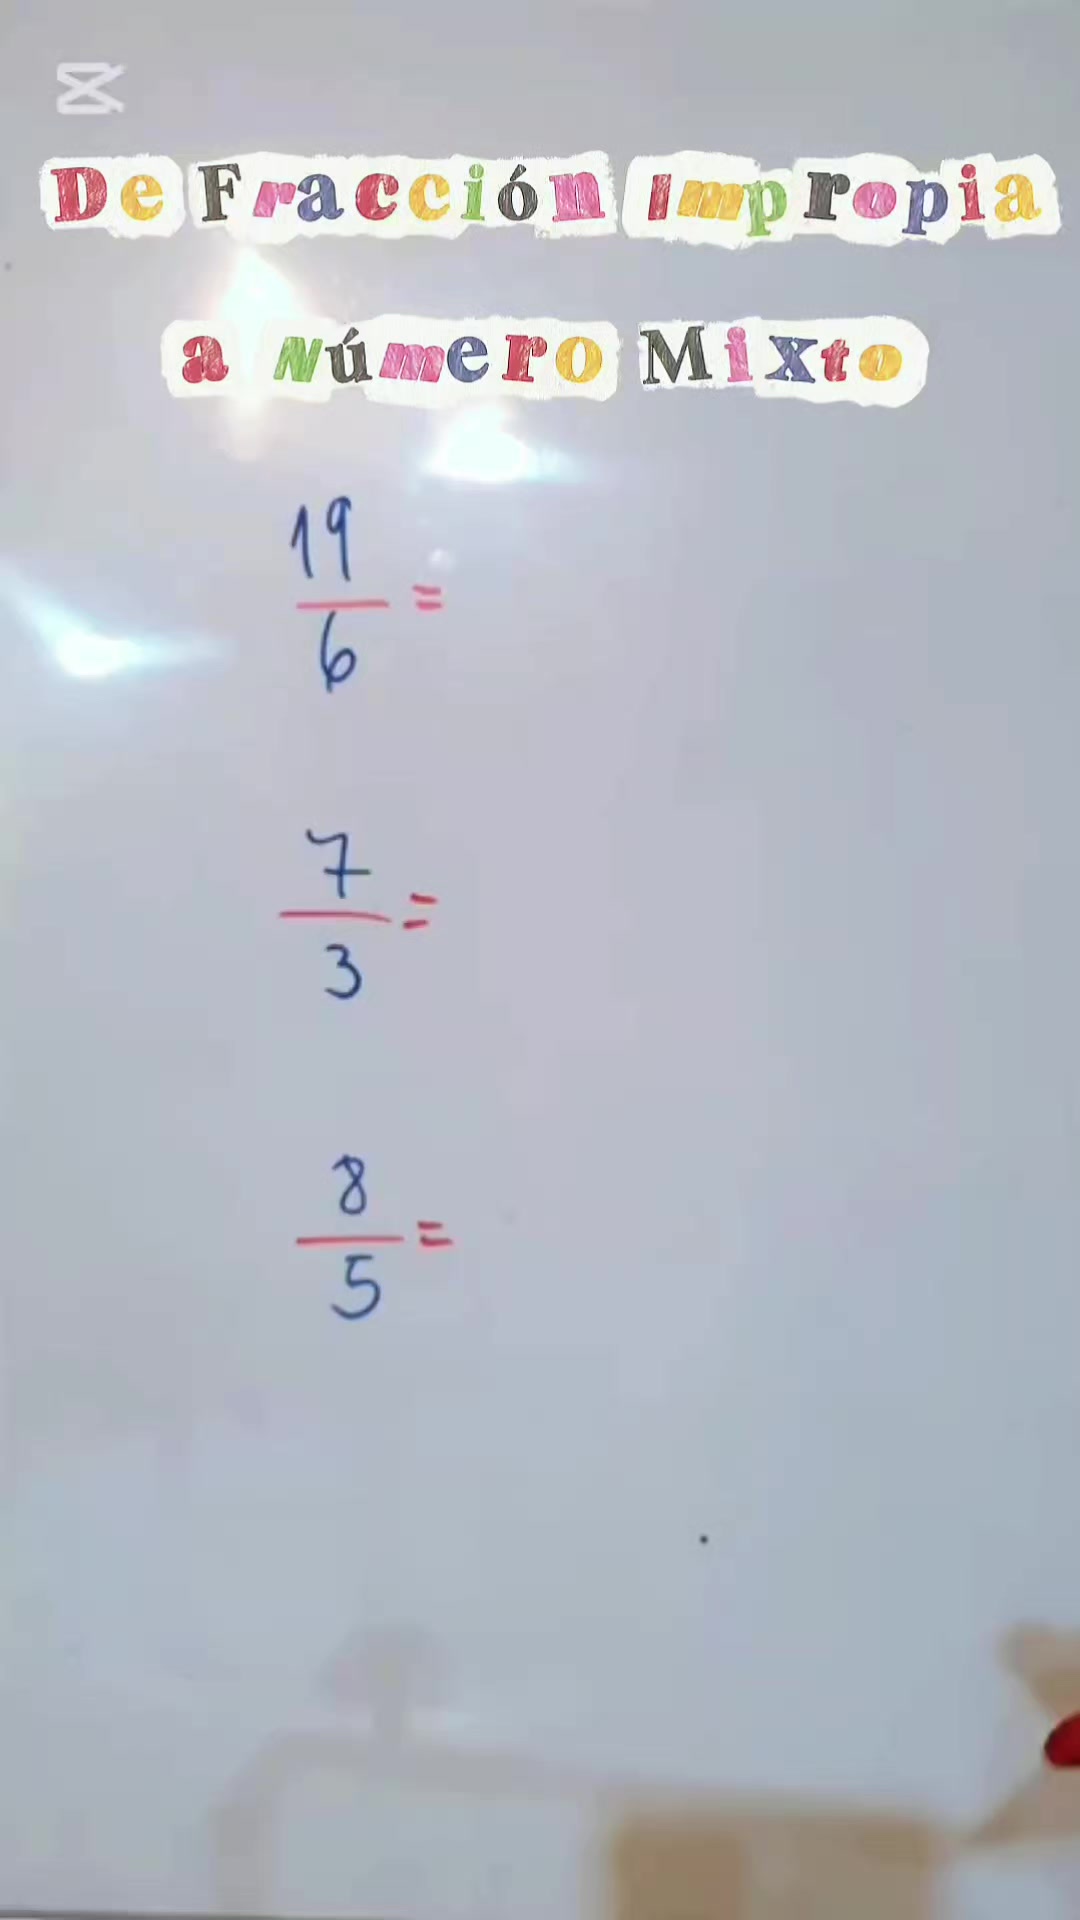 De Fracción Impropia
a Número Mixto
19
6 =
7
3 =
8
5 =